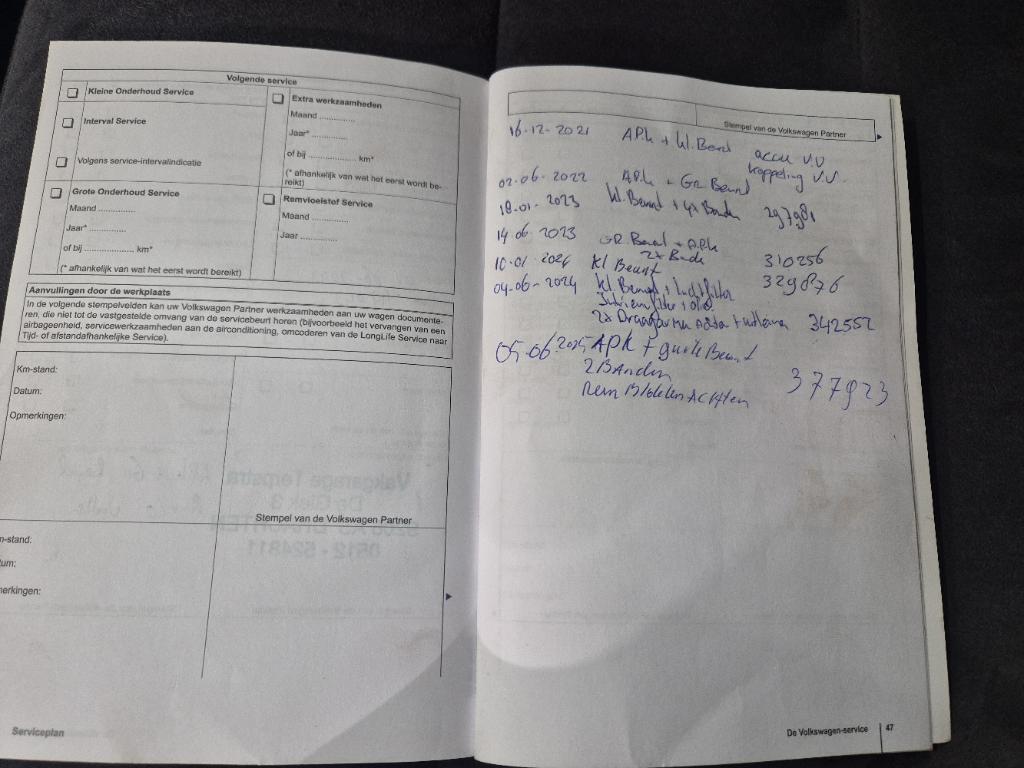 Volgende service
Kleine Onderhoud Service
Interval Service
Volgens service-intervalindicatie
Extra werkzaamheden
Maand ..............
Jaar* ..............
of bij .................. km*
(* afhankelijk van wat het eerst wordt be-
reikt)
Grote Onderhoud Service
Maand ..............
Jaar* ..............
of bij .................. km*
(* afhankelijk van wat het eerst wordt bereikt)
Remvloeistof Service
Maand ..............
Jaar ..............
Aanvullingen door de werkplaats
In de volgende stempelvelden kan uw Volkswagen Partner werkzaamheden aan uw wagen documente-
ren, die niet tot de vastgestelde omvang van de servicebeurt horen (bijvoorbeeld het vervangen van een
airbageenheid, servicewerkzaamheden aan de airconditioning, omcoderen van de LongLife Service naar
Tijd- of afstandafhankelijke Service).
Km-stand:
Datum:
Opmerkingen:
Stempel van de Volkswagen Partner
m-stand:
tum:
merkingen:
Serviceplan
Stempel van de Volkswagen Partner
16-12-2021 APk + kl. Beurt accu V.V
koppeling V.V.
02-06-2022 APk + GR Beurt
18-01-2023 kl. Beurt + 297981
14-06 2023 GR. Beurt + APk
2x Bande 310256
10-01-2024 kl Beurt 329876
04-06-2024 kl Beurt + luchtfilter
+ olie
2x 342552
05-06-2025 APK + grote Beurt
2 Banden 377923
Rem Blokken Achten
De Volkswagen-service 47